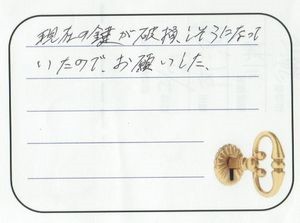 現在の鍵が破損しそうになって
いたので、お願いした。